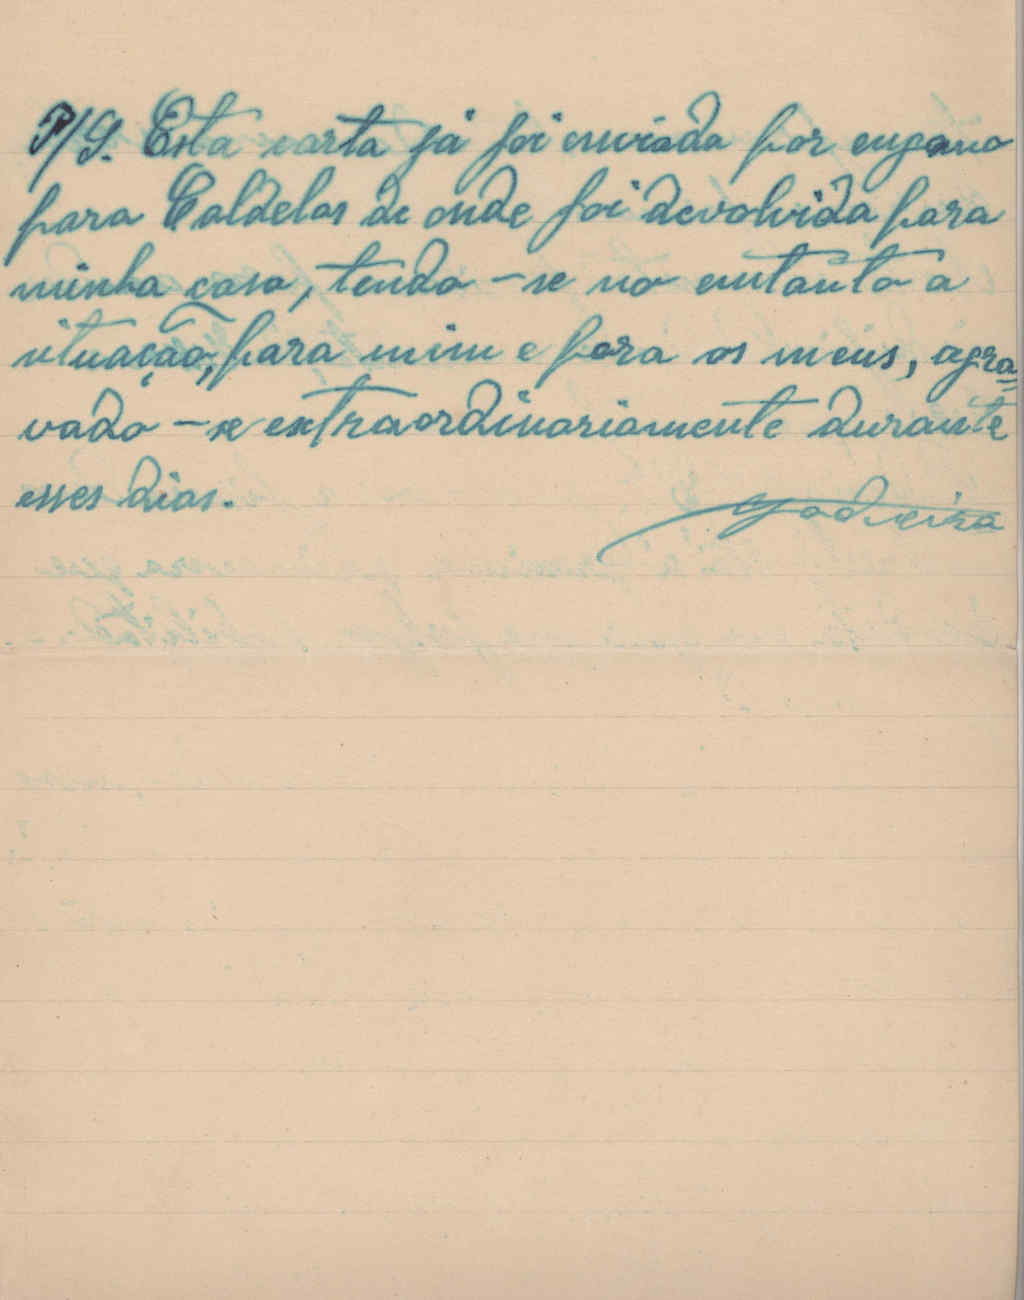 P/S. Esta carta já foi enviada por engano
para Caldelas de onde foi devolvida para
minha casa, tendo-se no entanto a
situação, para mim e para os meus, agra-
vado-se extraordinariamente durante
esses dias.